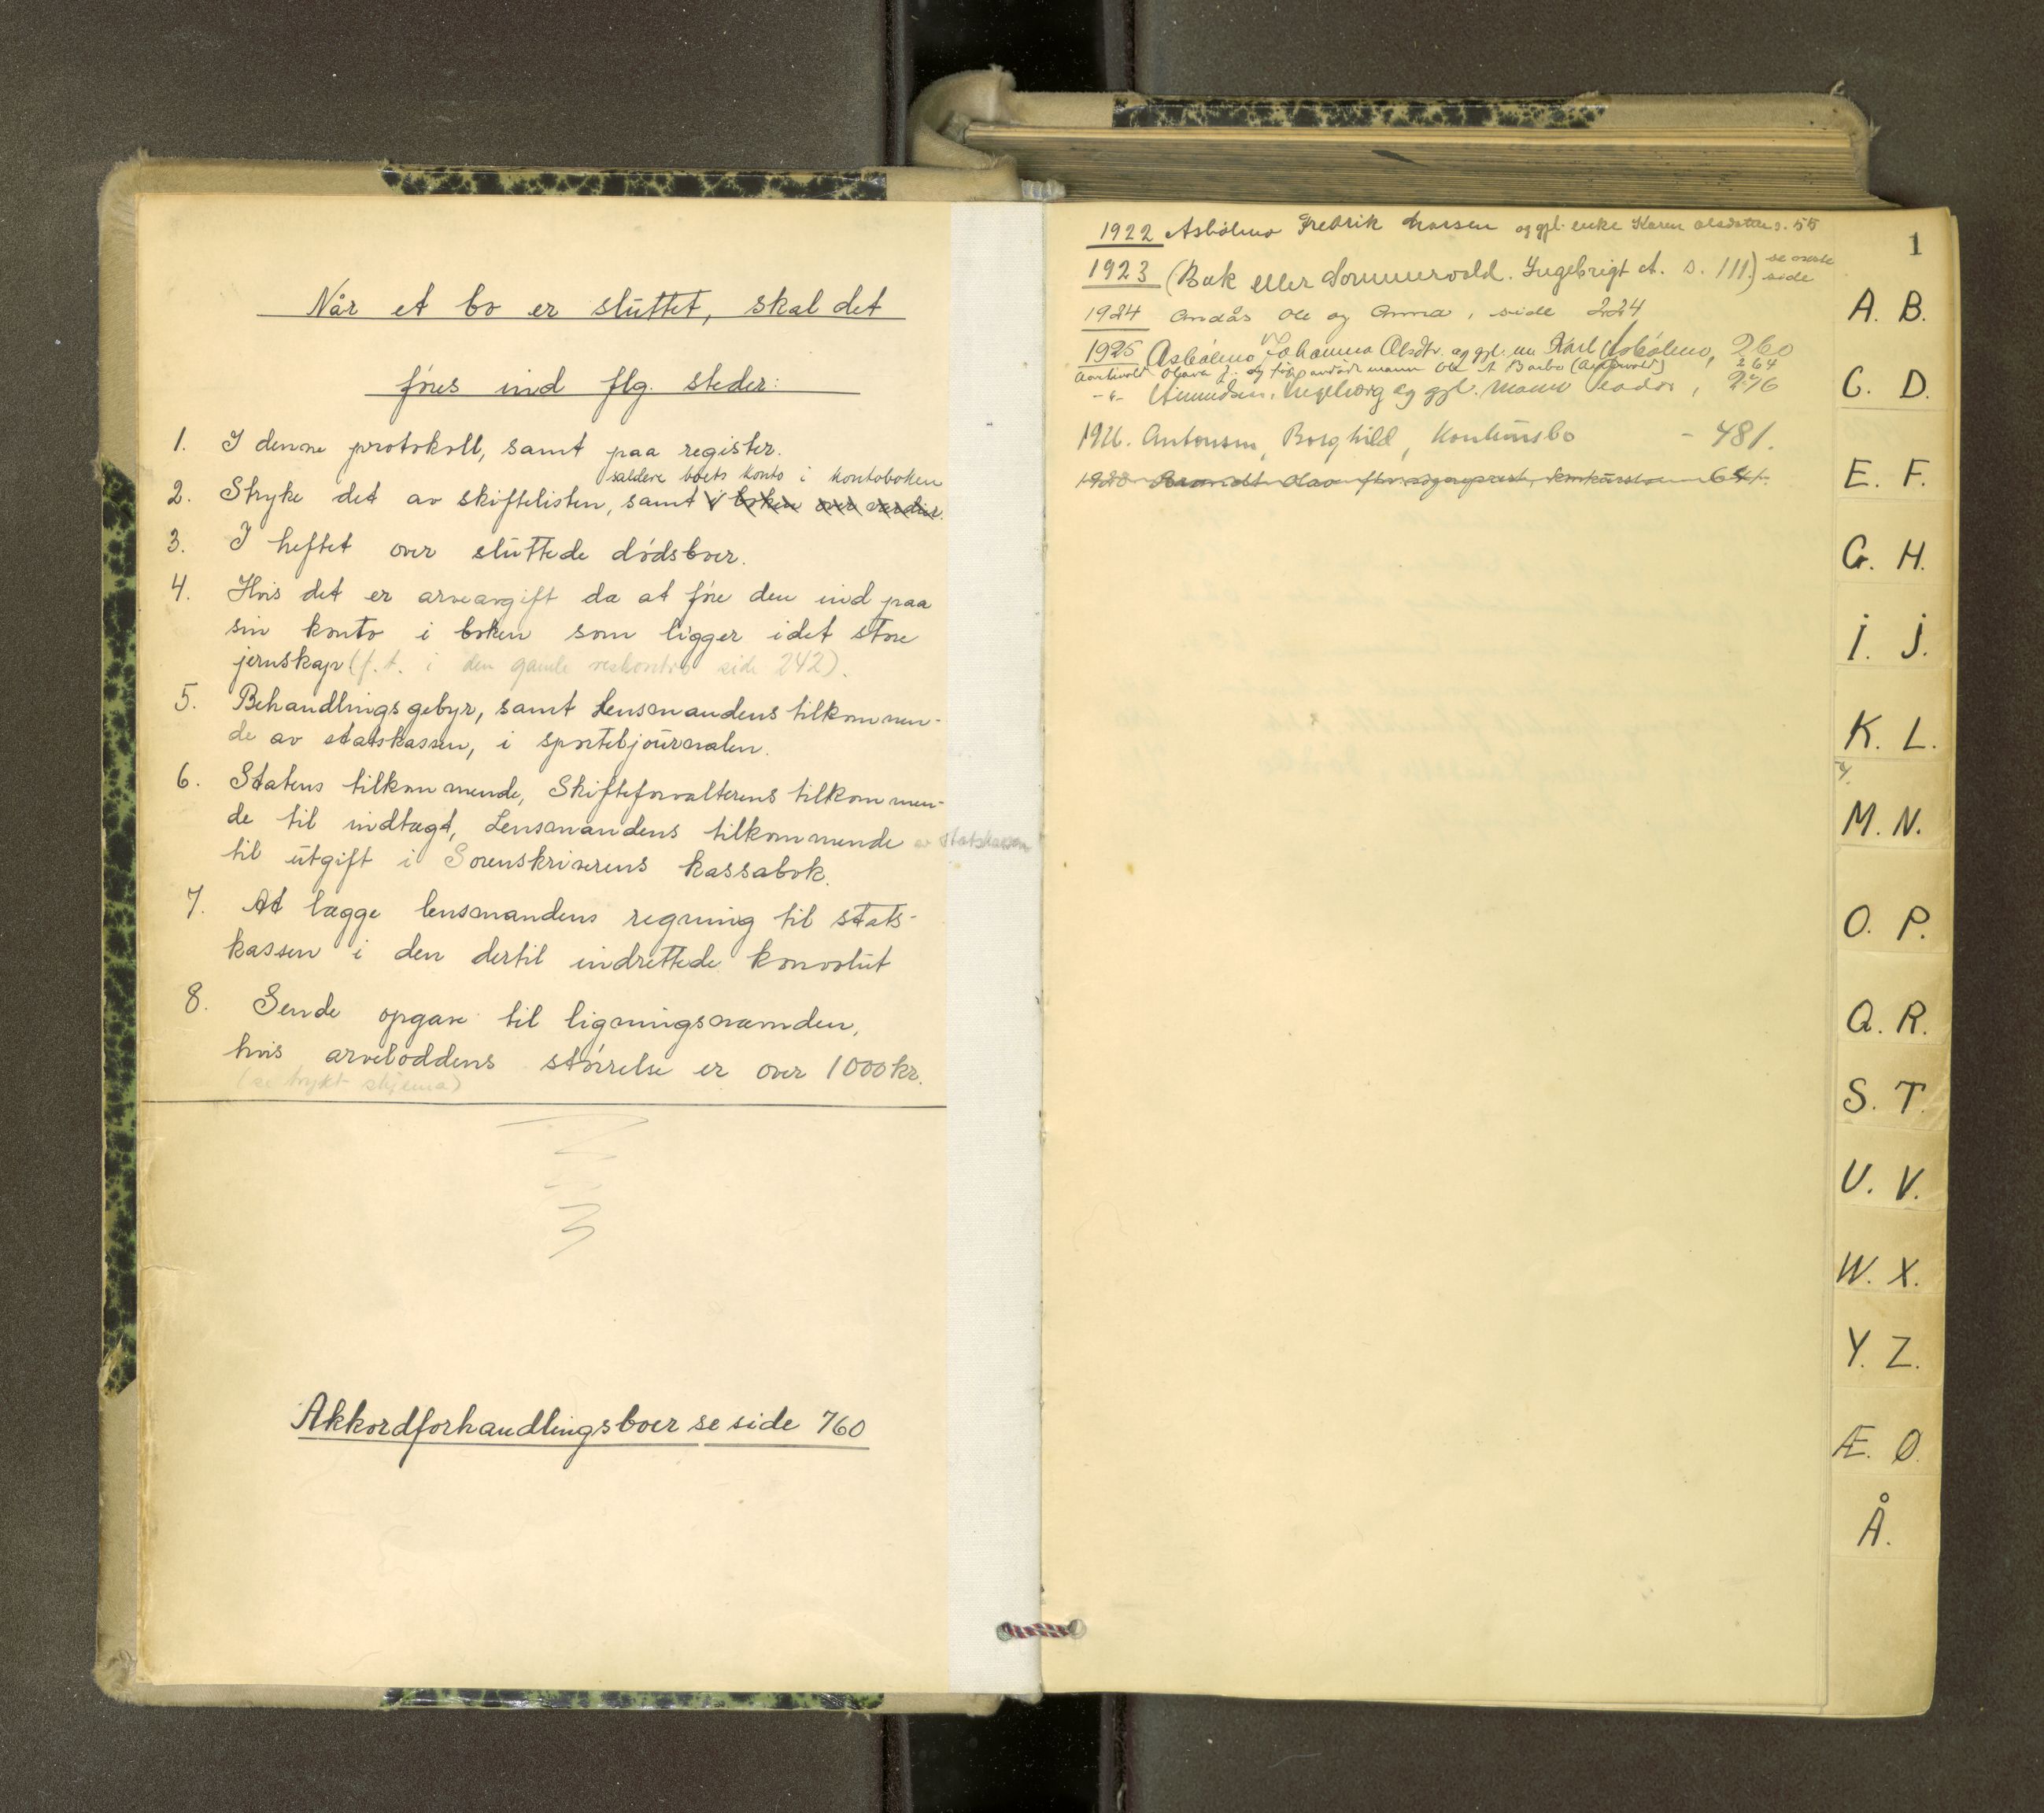 Når et bo er sluttet, skal det
føres ind flg. steder:
1. I denne protokoll, samt paa register.
saldere boets konto i kontoboken
2. Stryke det av skiftelisten, samt i boken over verdier.
3. I heftet over sluttede dødsboer.
4. Hvis det er arveavgift da at føre den ind paa
sin konto i boken som ligger i det store
jernskap (f.t. i den gamle reskontro side 242).
5. Behandlingsgebyr, samt Lensmandens tilkommen-
de av statskassen, i sporteljournalen.
6. Statens tilkommende, Skifteforvalterens tilkommen-
de til indtægt, Lensmandens tilkommende av statskassen
til utgift i Sorenskriverens kassabok.
7. At lægge lensmandens regning til stats-
kassen i den dertil indrettede konvolut
8. Sende opgave til ligningsnævnden,
hvis arveloddens størrelse er over 1000 kr.
(se trykt skjema)
Akkordforhandlingsboer se side 760
1
1922 Asbølmo Fredrik Larssen og gjl. enke Karen Olsdatter s. 55
1923 (Bæk eller Sommervold. Ingebrigt A. s. 111.) se neste side
1924 Andås Ole og Anna, side 224
1925 Asbølmo, Johanna Olsdtr. og gjl. m. Karl Asbølmo, 260
Olava J. og før avdøde mann Ole A. Barbo 264
-"- Amundsen, Ingeborg og gjl. mann 276
1926. Antonsen, Borghild, Konkursbo - 481.
Brandt Olav konkursbo
A. B.
C. D.
E. F.
G. H.
I. J.
K. L.
M. N.
O. P.
Q. R.
S. T.
U. V.
W. X.
Y. Z.
Æ. Ø
Å.